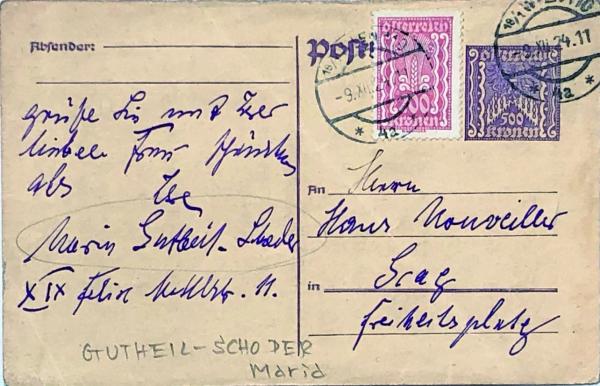 Absender:
grüße Sie mit Ihrer
lieben Frau
als Ihre
Marie Gutheil-Schoder
XIX Felix Mottlstr. 11.
GUTHEIL-SCHODER
Maria
österreich
kronen
österreich
500
kronen
WIEN
9.XII.24.11
* 4a *
An
Herrn
Hans Nouveiller
in
Graz
Freiheitsplatz